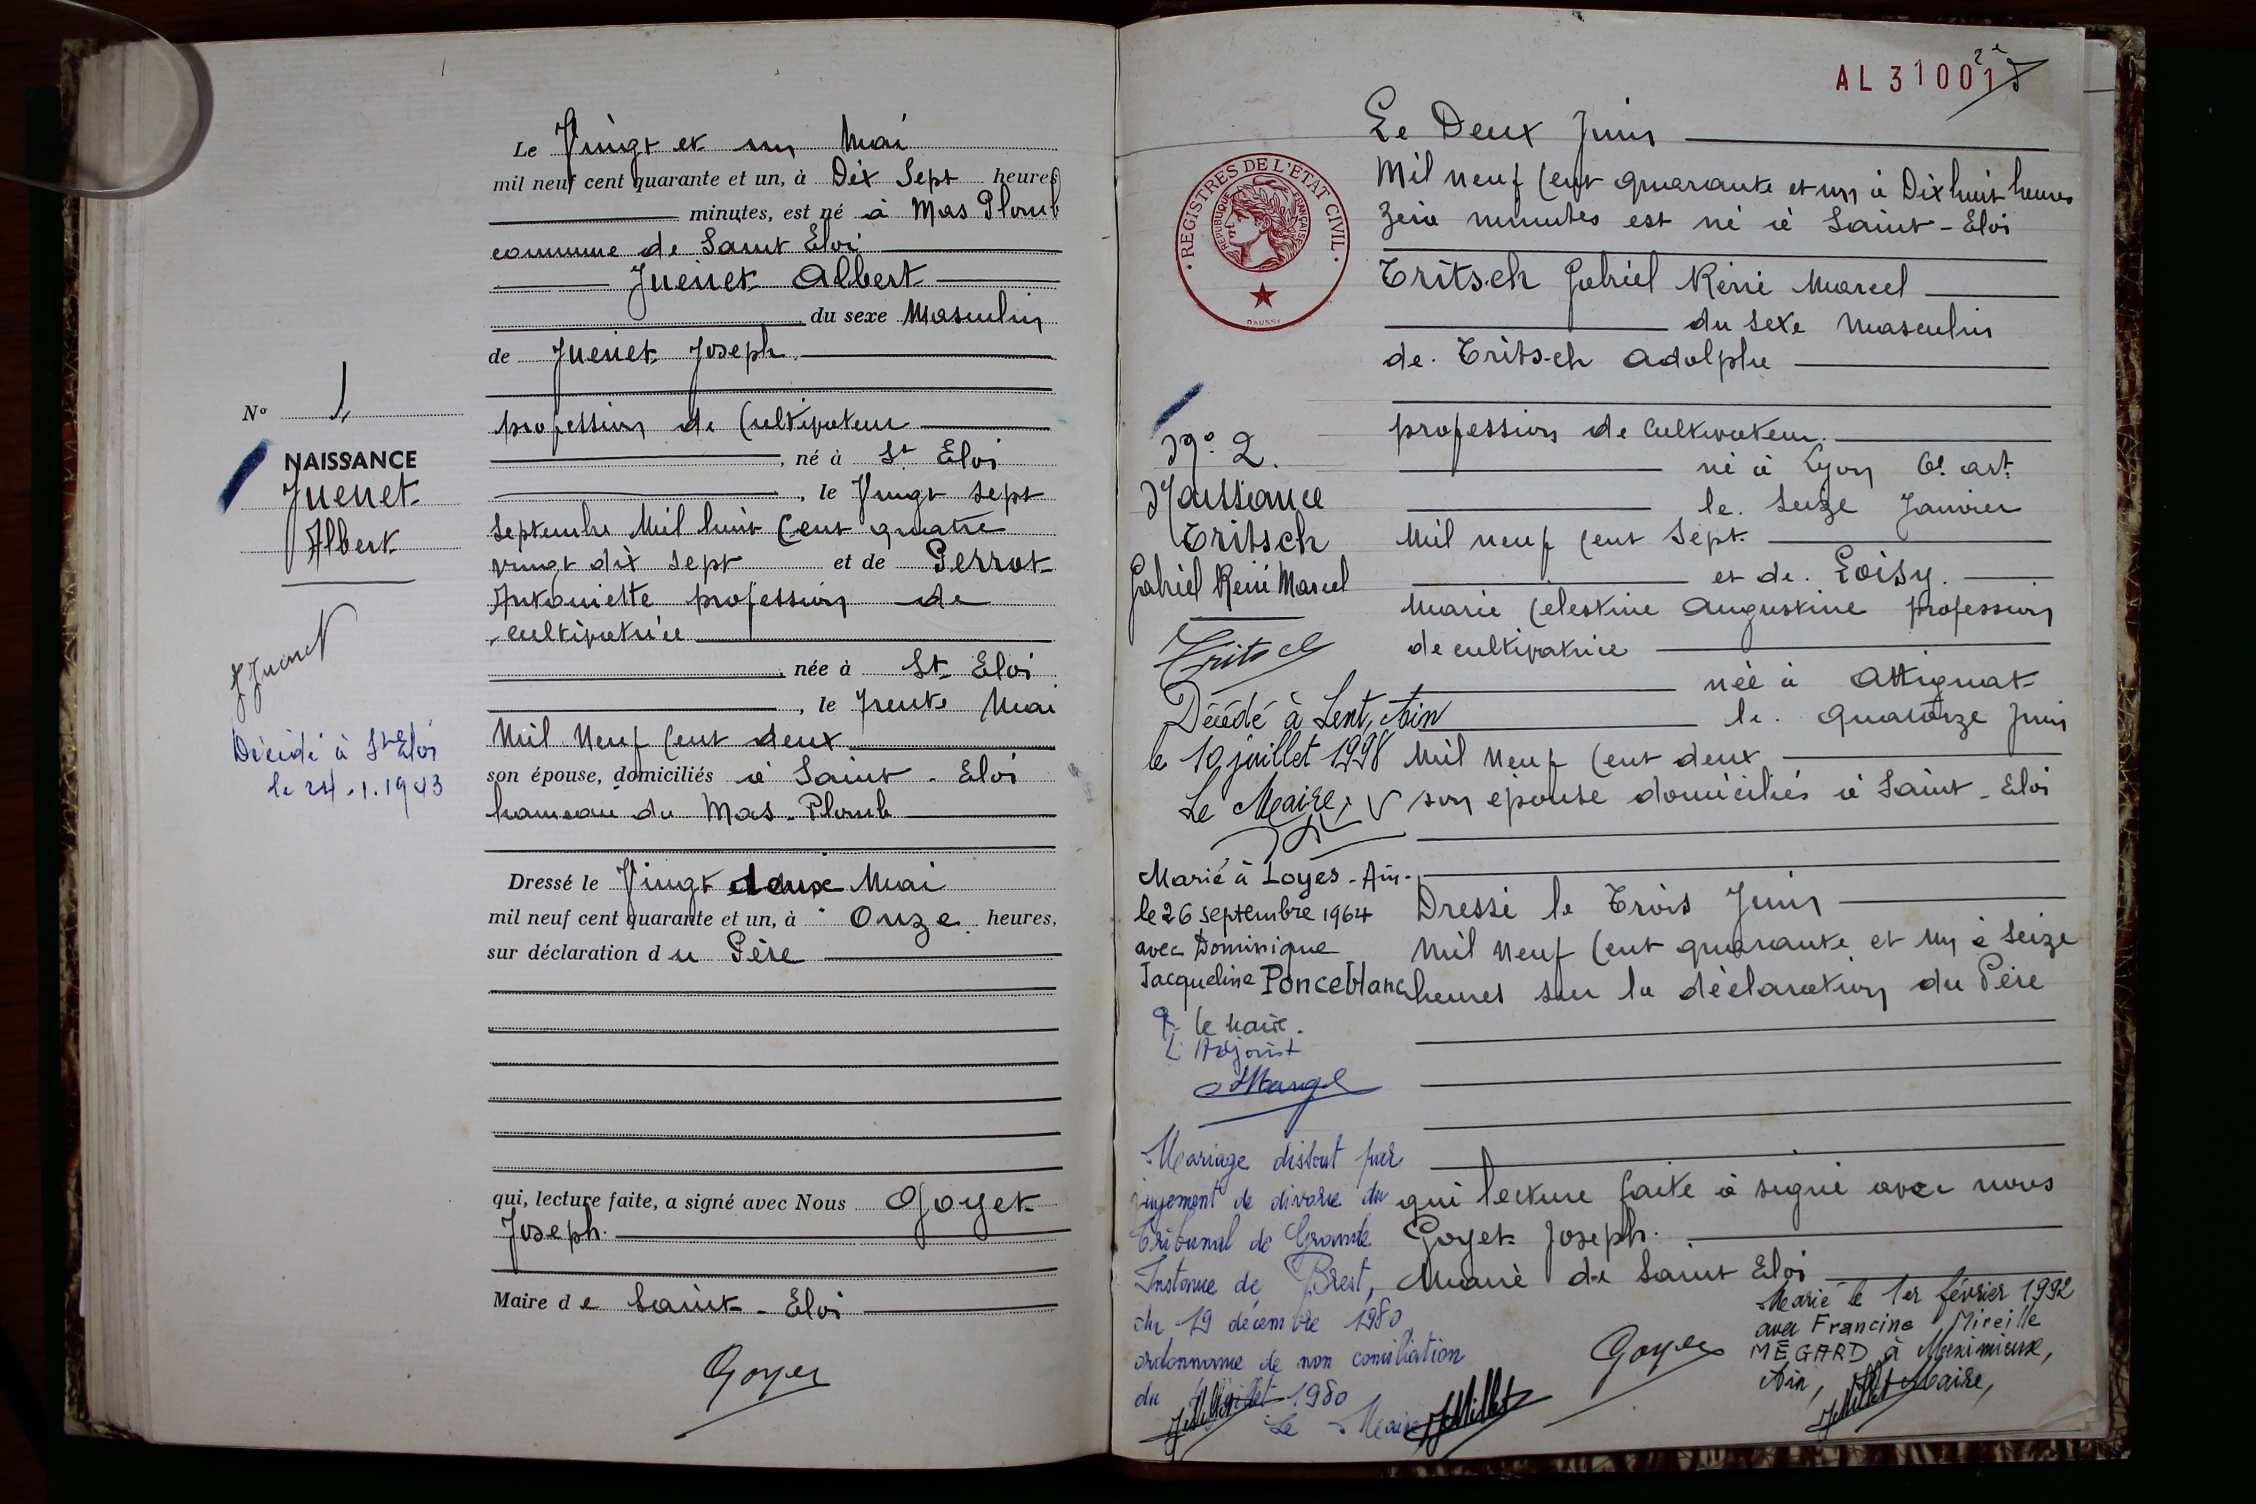 Le Vingt et un Mai
mil neuf cent quarante et un, à Dix Sept heures
minutes, est né à Mas Plomb
commune de Saint Eloi
Juenet Albert
du sexe Masculin
de Juenet Joseph
profession de Cultivateur
, né à St Eloi
, le Vingt Sept
Septembre Mil huit Cent quatre
vingt dix Sept et de Perrot
Antoinette profession de
cultivatrice
, née à St Eloi
, le Trente Mai
Mil Neuf Cent deux
son épouse, domiciliés à Saint-Eloi
hameau du Mas-Plomb
Dressé le Vingt deux Mai
mil neuf cent quarante et un, à Onze heures,
sur déclaration du Père
qui, lecture faite, a signé avec Nous Goyet
Joseph.
Maire de Saint-Eloi
Goyet
No 1
NAISSANCE
Juenet
Albert
J Juenet
Décédé à St Eloi
le 24.1.1943
AL 31001
2e
REGISTRES DE L'ETAT CIVIL
REPUBLIQUE FRANÇAISE
Le Deux Juin
Mil neuf Cent quarante et un à Dix huit heures
Zéro minutes est né à Saint-Eloi
Tritsch Gabriel Réné Marcel
du sexe Masculin
de Tritsch Adolphe
profession de Cultivateur.
né à Lyon 6e art
le Seize Janvier
Mil neuf Cent Sept
et de Loisy.
Marie Célestine Augustine profession
de cultivatrice
née à Attignat
le quatorze Juin
Mil Neuf Cent deux
son épouse domiciliés à Saint-Eloi
Dressé le Trois Juin
Mil Neuf Cent quarante et un à Seize
heures sur la déclaration du Père
qui lecture faite à signé avec nous
Goyet Joseph.
Maire de Saint Eloi
Goyet
No 2.
Naissance
Tritsch
Gabriel Réné Marcel
Tritsch
Décédé à Lent, Ain
le 10 juillet 1998
Le Maire,
Marié à Loyes-Ain-
le 26 septembre 1964
avec Dominique
Jacqueline Ponceblanc
P. le Maire.
L'Adjoint
Mariage dissout par
jugement de divorce du
Tribunal de Grande
Instance de Brest,
du 19 décembre 1980
ordonnance de non conciliation
du juillet 1980
Le Maire
JMillet
Marié le 1er février 1992
avec Francine Mireille
MÉGARD à Meximieux,
Ain, Le Maire,
JMillet